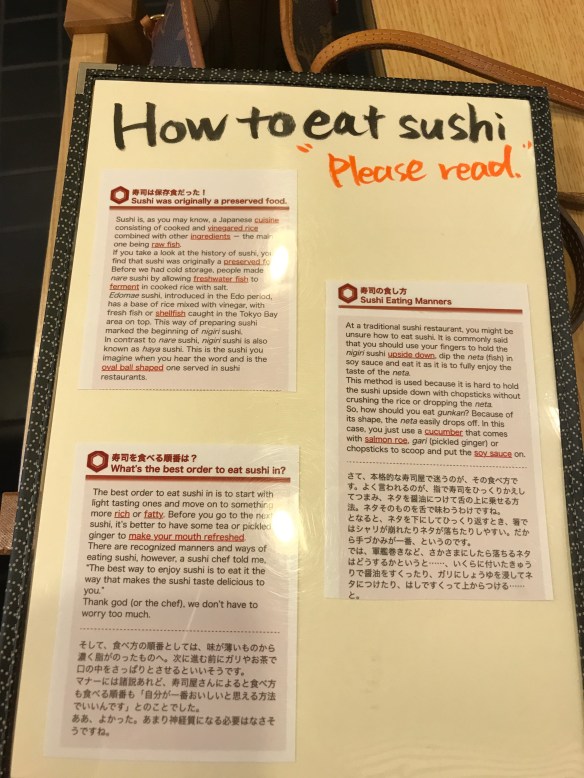 How to eat sushi
"Please read."
寿司は保存食だった！
Sushi was originally a preserved food.
Sushi is, as you may know, a Japanese cuisine
consisting of cooked and vinegared rice
combined with other ingredients – the main
one being raw fish.
If you take a look at the history of sushi, you
find that sushi was originally a preserved
Before we had cold storage, people made
nare sushi by allowing freshwater fish to
ferment in cooked rice with salt.
Edomae sushi, introduced in the Edo period,
has a base of rice mixed with vinegar, with
fresh fish or shellfish caught in the Tokyo Bay
area on top. This way of preparing sushi
marked the beginning of nigiri sushi.
In contrast to nare sushi, nigiri sushi is also
known as haya sushi. This is the sushi you
imagine when you hear the word and is the
oval ball shaped one served in sushi
restaurants.
寿司を食べる順番は？
What's the best order to eat sushi in?
The best order to eat sushi in is to start with
light tasting ones and move on to something
more rich or fatty. Before you go to the next
sushi, it's better to have some tea or pickled
ginger to make your mouth refreshed.
There are recognized manners and ways of
eating sushi, however, a sushi chef told me,
"The best way to enjoy sushi is to eat it the
way that makes the sushi taste delicious to
you."
Thank god (or the chef), we don't have to
worry too much.
そして、食べ方の順番としては、味が薄いものから
濃く脂がのったものへ。次に進む前にガリやお茶で
口の中をさっぱりとさせるといいそうです。
マナーには諸説あれど、寿司屋さんによると食べ方
も食べる順番も「自分が一番おいしいと思える方法
でいいんです」とのことでした。
ああ、よかった。あまり神経質になる必要はなさそ
うですね。
寿司の食し方
Sushi Eating Manners
At a traditional sushi restaurant, you might be
unsure how to eat sushi. It is commonly said
that you should use your fingers to hold the
nigiri sushi upside down, dip the neta (fish) in
soy sauce and eat it as it is to fully enjoy the
taste of the neta.
This method is used because it is hard to hold
the sushi upside down with chopsticks without
crushing the rice or dropping the neta.
So, how should you eat gunkan? Because of
its shape, the neta easily drops off. In this
case, you just use a cucumber that comes
with salmon roe, gari (pickled ginger) or
chopsticks to scoop and put the soy sauce on.
さて、本格的な寿司屋で迷うのが、その食べ方で
す。よく言われるのが、指で寿司をひっくりかえし
てつまみ、ネタを醤油につけて舌の上に乗せる方
法。ネタそのものを舌で味わうわけですね。
となると、ネタを下にしてひっくり返すとき、箸で
はシャリが崩れたりネタが落ちたりしやすい。だか
ら手づかみが一番、というのです。
では、軍艦巻きなど、さかさまにしたら落ちるネタ
はどうするかというと……、いくらに付いたきゅう
りで醤油をすくったり、ガリにしょうゆを浸してネ
タにつけたり、はしですくって上からつける……
と。